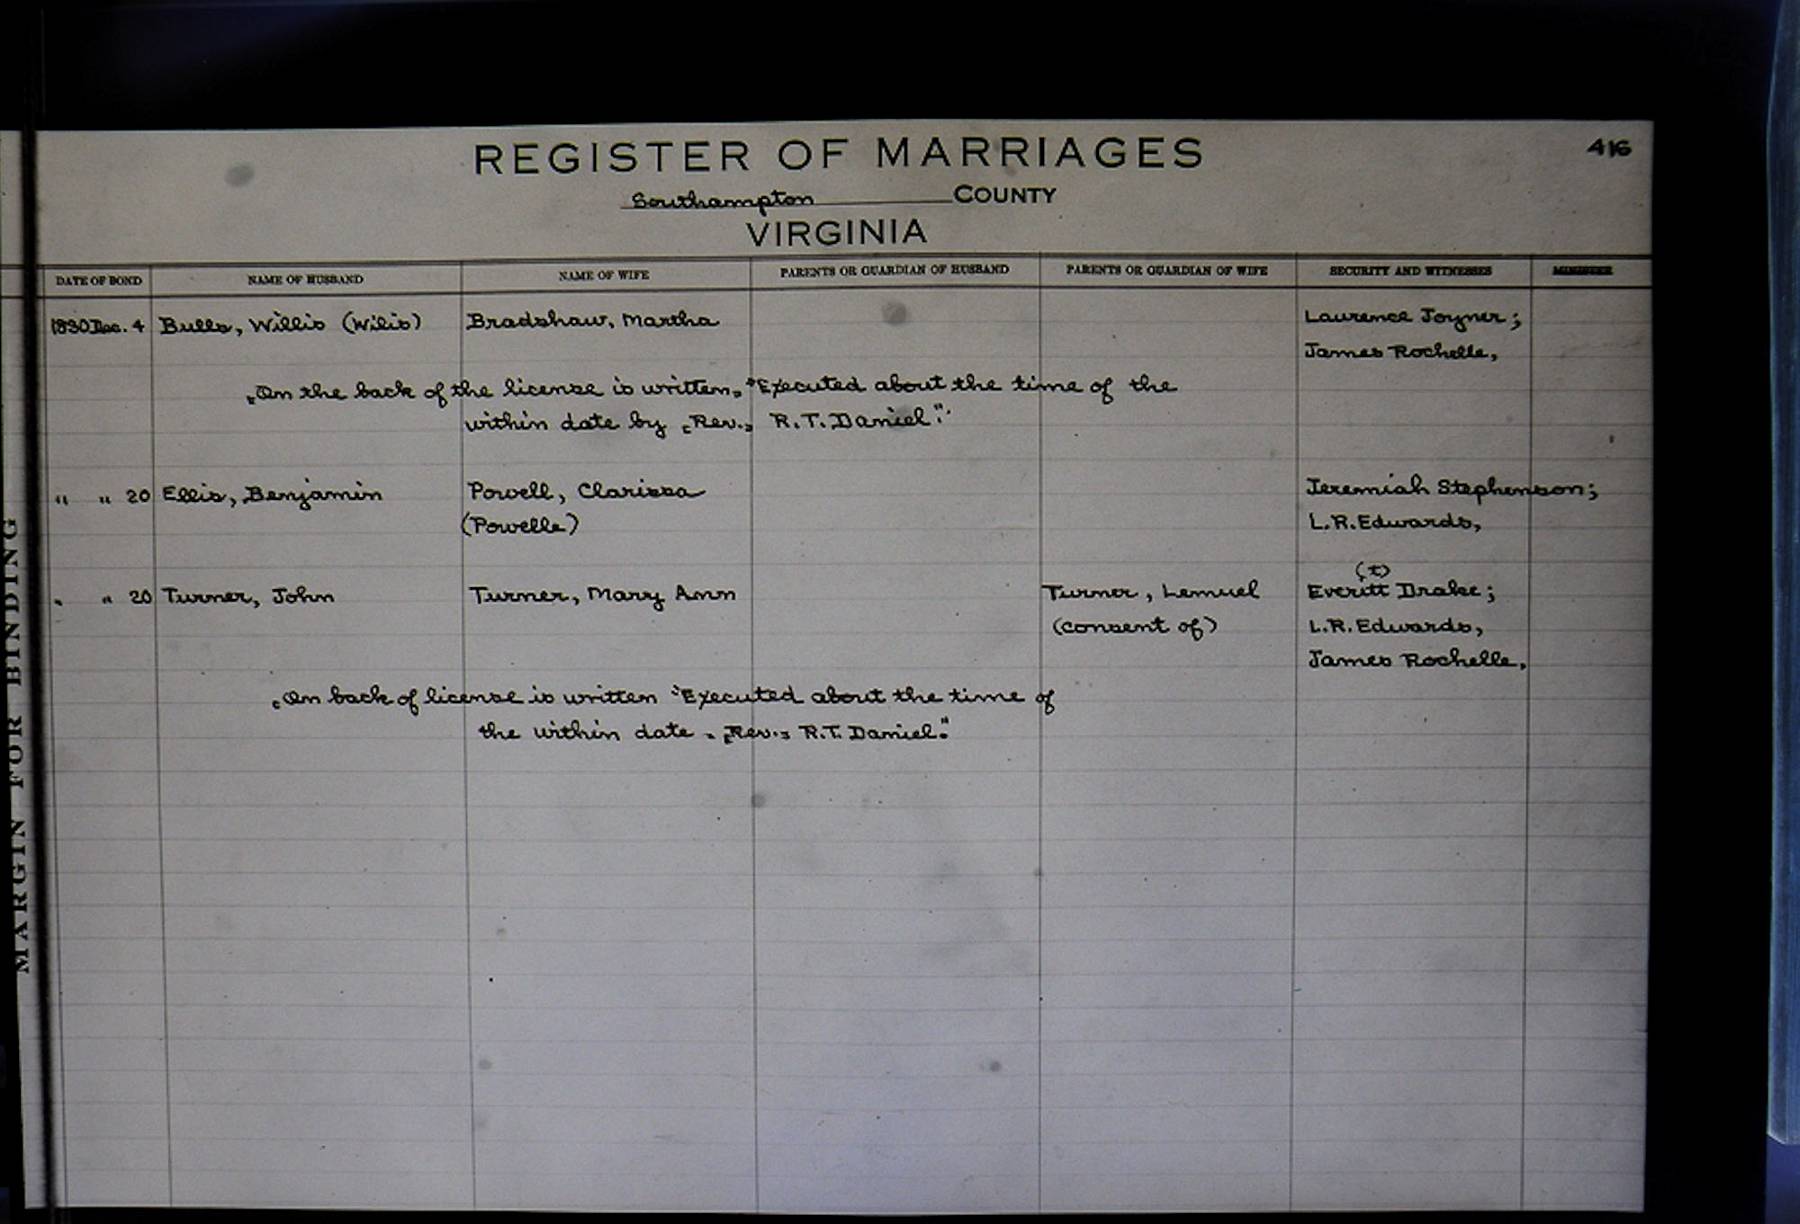 REGISTER OF MARRIAGES
416
Southampton COUNTY
VIRGINIA
DATE OF BOND NAME OF HUSBAND NAME OF WIFE PARENTS OR GUARDIAN OF HUSBAND PARENTS OR GUARDIAN OF WIFE SECURITY AND WITNESSES MINISTER
1830 Dec. 4 Bulls, Willis (Wilis) Bradshaw, Martha Laurence Joyner;
James Rochelle,
[On the back of the license is written] "Executed about the time of the
within date by [Rev.] R.T. Daniel".
" " 20 Ellis, Benjamin Powell, Clarissa Jeremiah Stephenson;
(Powelle) L.R. Edwards,
" " 20 Turner, John Turner, Mary Ann Turner, Lemuel (t) Everitt Drake;
(consent of) L.R. Edwards,
James Rochelle,
[On back of license is written "Executed about the time of
the within date. [Rev.] R.T. Daniel."
MARGIN FOR BINDING